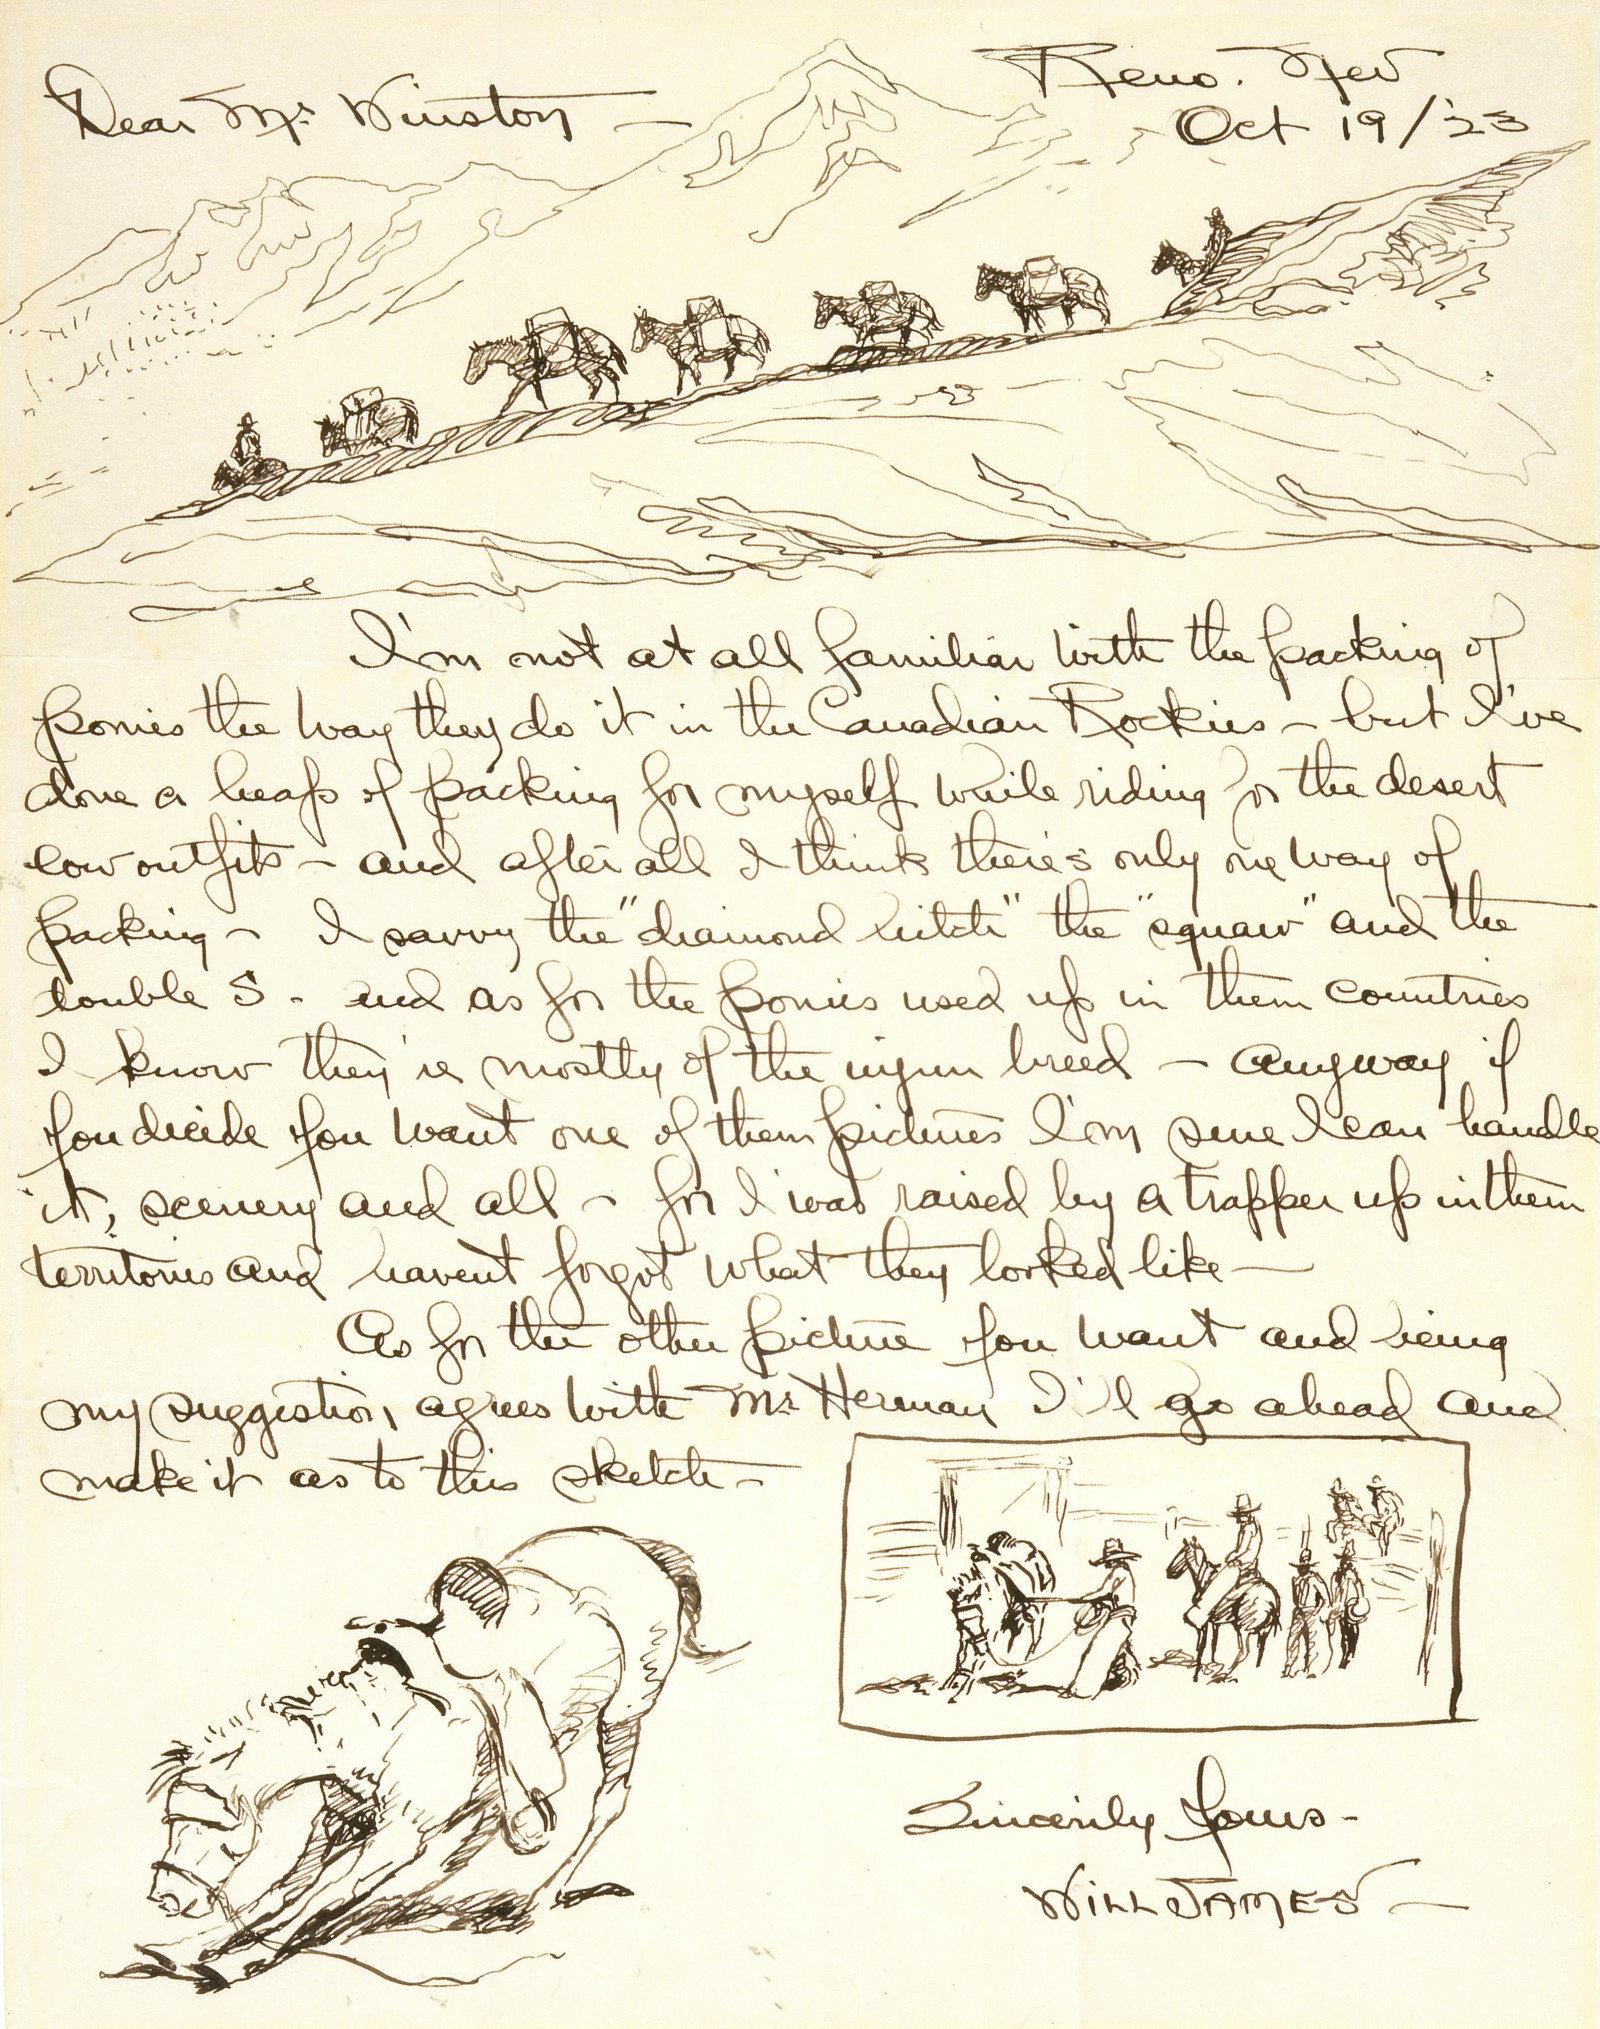 Reno. Nev
Dear Mr Winston —
Oct 19/'23
I'm not at all familiar with the packing of
ponies the way they do it in the Canadian Rockies – but I've
done a heap of packing for myself while riding for the desert
cow outfits – and after all I think there's only one way of
packing – I savvy the "diamond hitch" the "squaw" and the
double S - and as for the ponies used up in them countries
I know they're mostly of the injun breed – anyway if
you decide you want one of them pictures I'm sure I can handle
it, scenery and all – for I was raised by a trapper up in them
territories and havent forgot what they looked like —
As for the other picture you want and being
my suggestion agrees with Mr Herman I'll go ahead and
make it as to this sketch –
Sincerily Yours -
WILL JAMES —